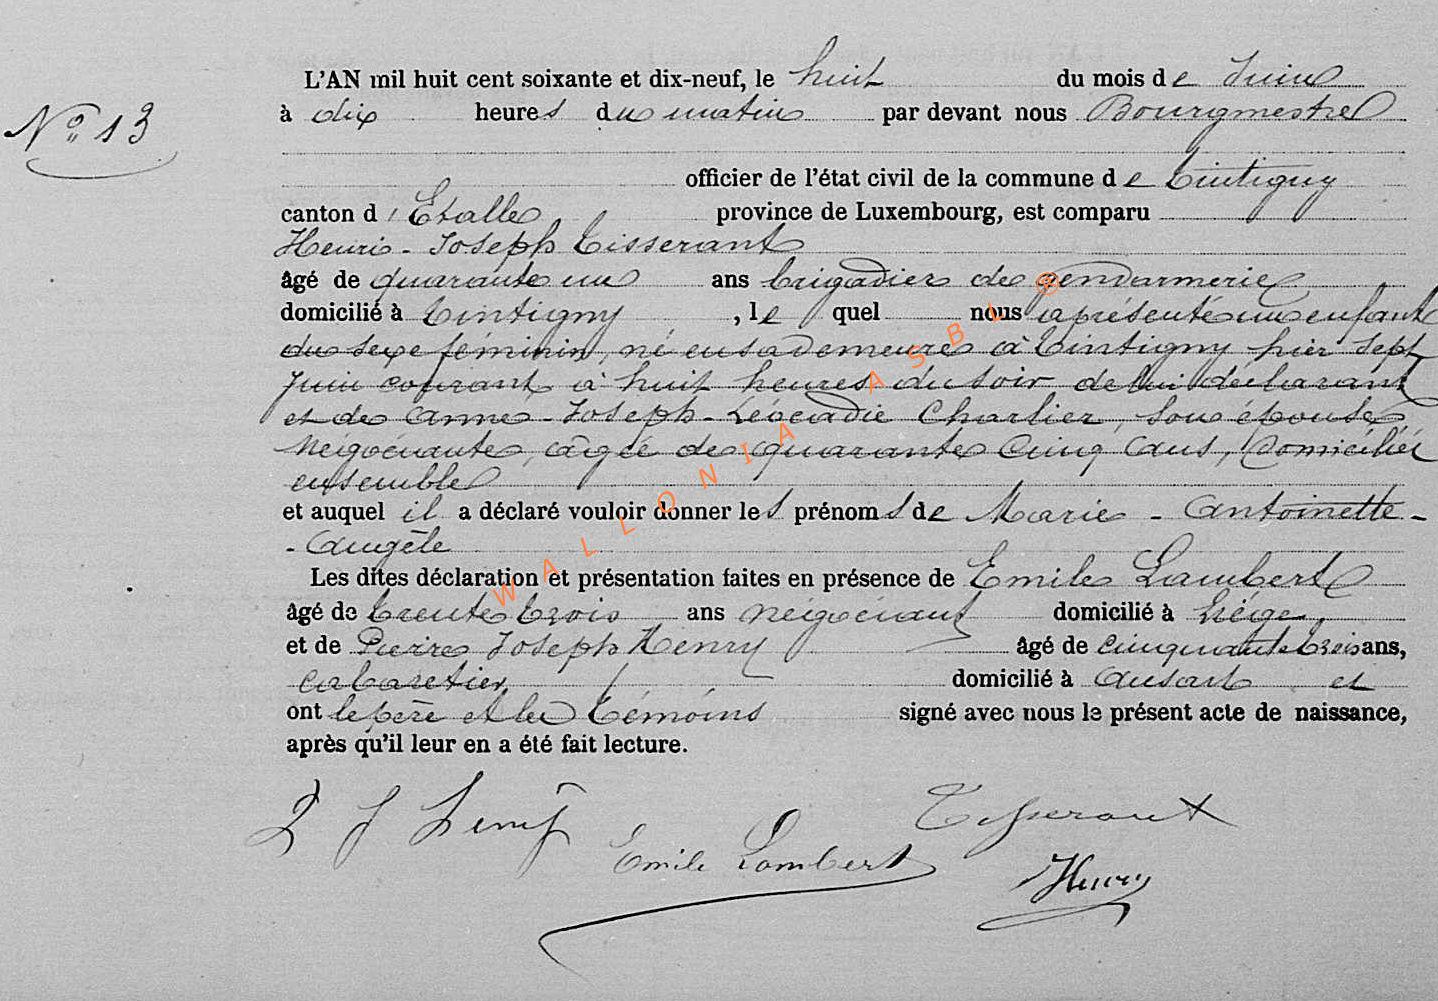 L'AN mil huit cent soixante et dix-neuf, le huit du mois de Juin
N° 13
à dix heures du matin par devant nous Bourgmestre
officier de l'état civil de la commune de Tintigny
canton d'Etalle province de Luxembourg, est comparu
Henri-Joseph Tisserant
âgé de quarante un ans brigadier de gendarmerie
domicilié à Tintigny, lequel nous a présenté un enfant
du sexe féminin, né en sa demeure à Tintigny hier sept
Juin courant à huit heures du soir de lui déclarant
et de Anne-Joseph-Léocadie Charlier, son épouse
négociante, âgée de quarante cinq ans, domiciliés
ensemble
et auquel il a déclaré vouloir donner les prénoms de Marie-Antoinette-
-Angèle
Les dites déclaration et présentation faites en présence de Emile Lambert
âgé de trente trois ans négociant domicilié à Liége,
et de Pierre Joseph Henry âgé de cinquante trois ans,
cabaretier, domicilié à Ansart et
ont le père et les témoins signé avec nous le présent acte de naissance,
après qu'il leur en a été fait lecture.
P J Henry
Tisserant
Emile Lambert
Henry
WALLONIA ASBL ®